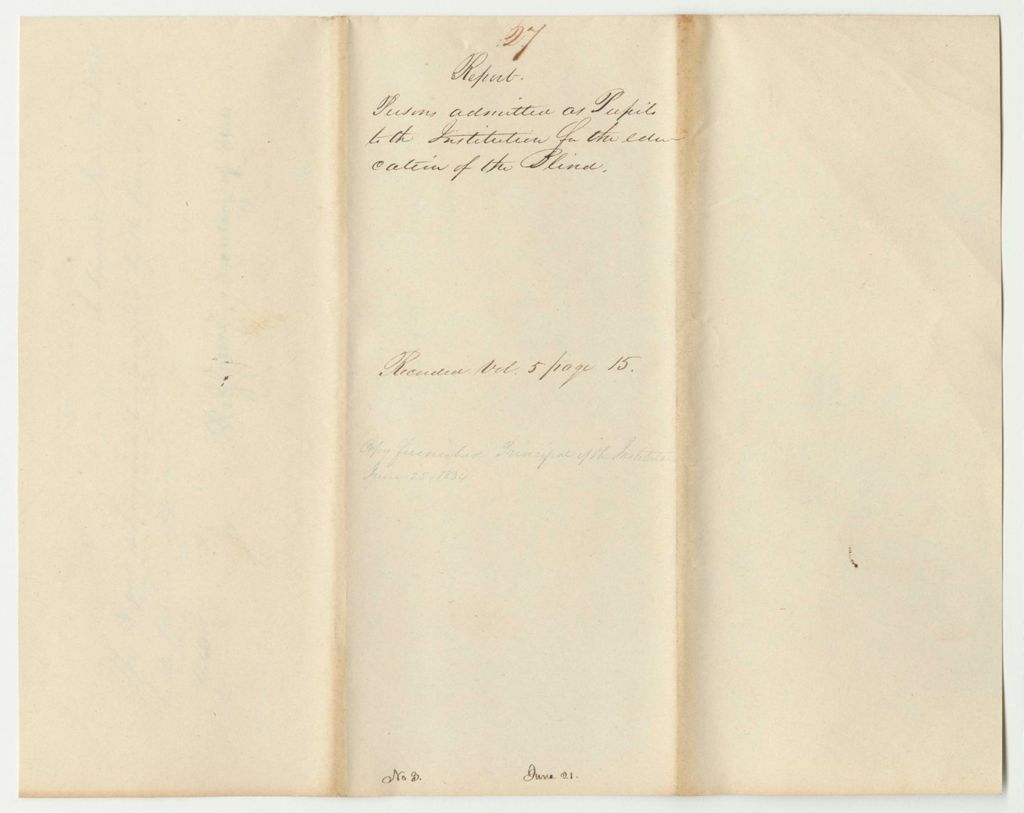 27
Report.
Persons admitted as Pupils
to the Institution for the edu-
cation of the Blind.
Recorded Vol. 5 page 15.
Copy furnished Principal of the Institution
June 25. 1834
No 3. June 21.